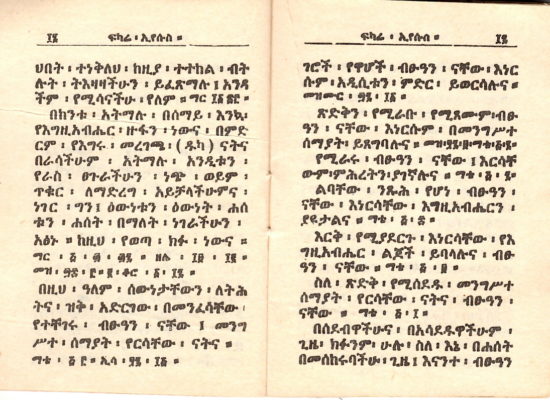 ፲፪ ፍካሬ ፡ ኢየሱስ ።
ህበት ፡ ተነቅለህ ፡ ከዚያ ፡ ተተከል ፡ ብት
ሉት ፡ ትእዛዛችሁን ፡ ይፈጽማሉ ፤ አንዳ
ችም ፡ የሚሳናችሁ ፡ የለም ።
በከንቱ ፡ አትማሉ ፡ በሰማይ ፡ እንኳ
የእግዚአብሔር ፡ ዙፋን ፡ ነውና ፡ በምድ
ርም ፡ የእግሩ ፡ መረገጫ ፡ (ዱካ) ናትና
በራሳችሁም ፡ አትማሉ ፡ አንዲቱን ፡
የራስ ፡ ፀጉራችሁን ፡ ነጭ ፡ ወይም ፡
ጥቁር ፡ ለማድረግ ፡ አይቻላችሁምና ፡
ነገር ፡ ግን ፤ ዕውነቱን ፡ ዕውነት ፡ ሐሰ
ቱን ፡ ሐሰት ፡ በማለት ፡ ነገራችሁን ፡
አፅኑ ፡ ከዚህ ፡ የወጣ ፡ ክፉ ፡ ነውና ።
በዚህ ፡ ዓለም ፡ ሰውነታችሁን ፡ ለትሕ
ትና ፡ ዝቅ ፡ አድርገው ፡ በመንፈሳቸው ፡
የተቸገሩ ፡ ብፁዓን ፡ ናቸው ፤ መንግ
ሥተ ፡ ሰማያት ፡ የርሳቸው ፡ ናትና ።
ፍካሬ ፡ ኢየሱስ ።
ገሮች ፡ የዋሆች ፡ ብፁዓን ፡ ናቸው ፡ እነር
ሱም ፡ አዲሲቱን ፡ ምድር ፡ ይወርሳሉና ።
ጽድቅን ፡ የሚራቡ ፡ የሚጸሙም ፡ ብፁ
ዓን ፡ ናቸው ፡ እነርሱም ፡ በመንግሥተ
ሰማያት ፡ ይጸግባሉና ።
የሚራሩ ፡ ብፁዓን ፡ ናቸው ፤ እርሳቸ
ውም ፡ ምሕረትን ፡ ያገኛሉና ።
ልባቸው ፡ ንጹሕ ፡ የሆነ ፡ ብፁዓን ፡
ናቸው ፡ እነርሳቸው ፡ እግዚአብሔርን ፡
ያዩታልና ።
እርቅ ፡ የሚያደርጉ ፡ እነርሳቸው ፡ የእ
ግዚአብሔር ፡ ልጆች ፡ ይባላሉና ፡ ብፁ
ዓን ፡ ናቸው ።
ስለ ፡ ጽድቅ ፡ የሚሰደዱ ፡ መንግሥተ
ሰማያት ፡ የርሳቸው ፡ ናትና ፡ ብፁዓን ፡
ናቸው ።
በሰደብዋችሁና ፡ በአሳደዱዋችሁም ፡
ጊዜ ፡ ክፋንም ፡ ሁሉ ፡ ስለ ፡ እኔ ፡ በሐሰት
በመሰከሩባችሁ ፡ ጊዜ ፤ እናንተ ፡ ብፁዓን